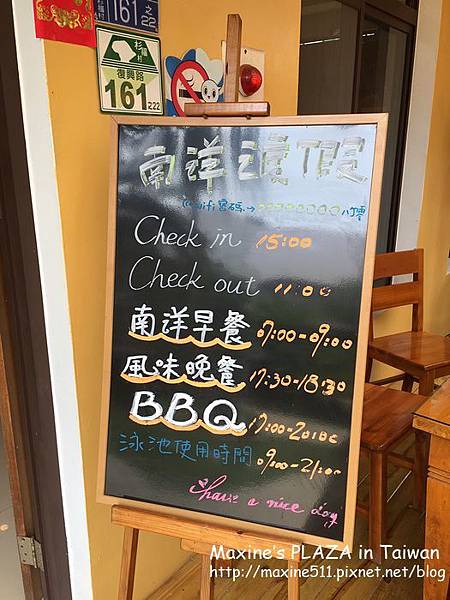 161之
222
杉福村
復興路
161 222
南洋渡假
wifi密碼→00000000 八個零
Check in 15:00
Check out 11:00
南洋早餐 07:00-09:00
風味晚餐 17:30-18:30
BBQ 17:00-20:00
泳池使用時間 09:00-21:00
have a nice day
Maxine's PLAZA in Taiwan
http://maxine511.pixnet.net/blog